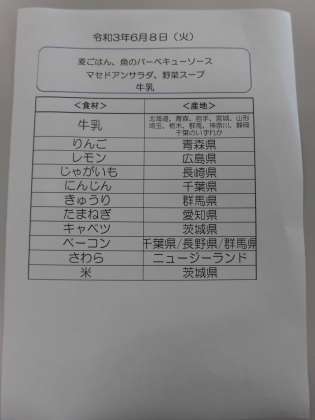 令和3年6月8日（火）
麦ごはん、魚のバーベキューソース
マセドアンサラダ、野菜スープ
牛乳
＜食材＞ ＜産地＞
牛乳 北海道、青森、岩手、宮城、山形
埼玉、栃木、群馬、神奈川、静岡
千葉のいずれか
りんご 青森県
レモン 広島県
じゃがいも 長崎県
にんじん 千葉県
きゅうり 群馬県
たまねぎ 愛知県
キャベツ 茨城県
ベーコン 千葉県/長野県/群馬県
さわら ニュージーランド
米 茨城県